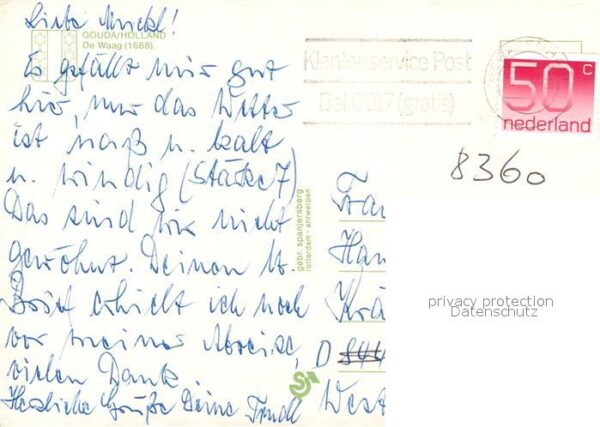 Liebe Muckl!
GOUDA/HOLLAND
De Waag (1668).
Es gefällt mir gut
hier, nur das Wetter
ist naß u. kalt
u. windig (Stärke 7)
Das sind wir nicht
gewöhnt. Deinen lb.
Brief erhielt ich noch
vor meiner Abreise,
vielen Dank.
Herzliche Grüße Deine Trudl
Klantenservice Post
Bel 0017 (gratis)
50 c
nederland
8360
gebr. spanjersberg
rotterdam - antwerpen
Frau
Han
Krä
D 844
West
privacy protection
Datenschutz